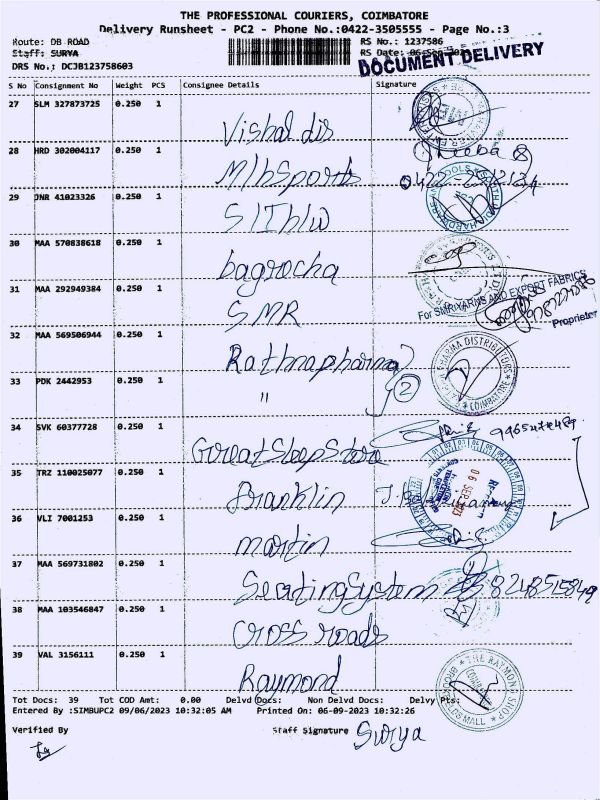 THE PROFESSIONAL COURIERS, COIMBATORE
Delivery Runsheet - PC2 - Phone No.:0422-3505555 - Page No.:3
Route: DB ROAD
RS No.: 1237586
Staff: SURYA
RS Date: 06-Sep-
DOCUMENT DELIVERY
DRS No.; DCJB123758603
S No Consignment No Weight PCS Consignee Details Signature
27 SLM 327873725 0.250 1
Vishal dis
28 HRD 302004117 0.250 1
Sheeba
M/hSports
0422
29 JNR 41023326 0.250 1
30 MAA 570838618 0.250 1
bagrocha
31 MAA 292949384 0.250 1
For SMR YARNS AND EXPORT FABRICS
SMR
Proprietor
32 MAA 569506944 0.250 1
Rathnapharma
PHARMA DISTRIBUTORS
COIMBATORE
33 PDK 2442953 0.250 1
" 2
34 SVK 60377728 0.250 1
GreatSleepStore
35 TRZ 110025077 0.250 1
06 SEP 2023
Franklin
36 VLI 7001253 0.250 1
martin
37 MAA 569731802 0.250 1
SeatingSystem 8248515849
38 MAA 103546847 0.250 1
Cross roads
39 VAL 3156111 0.250 1
Raymond
THE RAYMOND SHOP
BROOKEFIELDS MALL
Tot Docs: 39 Tot COD Amt: 0.00 Delvd Docs: Non Delvd Docs: Delvy Pts:
Entered By :SIMBUPC2 09/06/2023 10:32:05 AM Printed On: 06-09-2023 10:32:26
Verified By
Staff Signature Surya